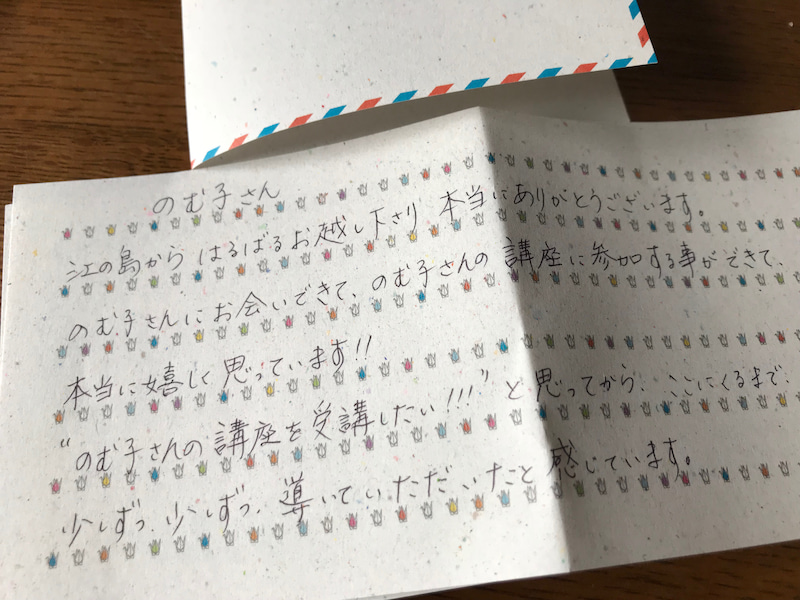 のむ子さん
江の島から はるばるお越し下さり 本当にありがとうございます。
のむ子さんにお会いできて、のむ子さんの 講座に参加する事ができて、
本当に嬉しく思っています!!
“のむ子さんの講座を受講したい!!!”と思ってから、ここにくるまで、
少しずつ、少しずつ、導いていただいたと感じています。